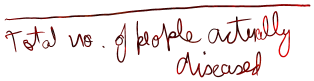 Total no. of people actually
diseased